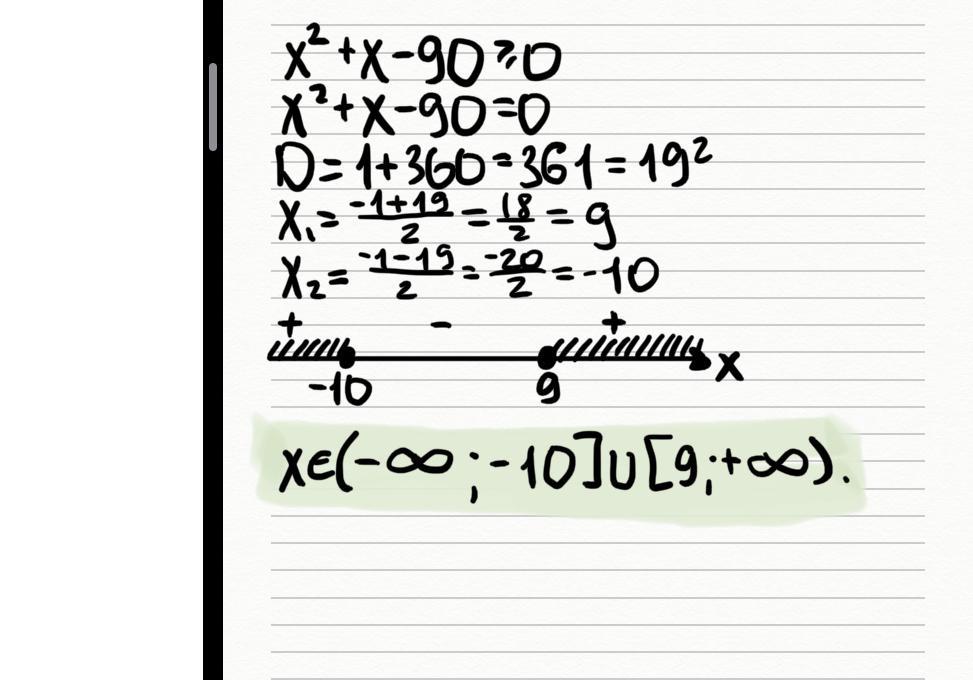 x²+x-90≥0
x²+x-90=0
D=1+360=361=19²
x₁=(-1+19)/2=18/2=9
x₂=(-1-19)/2=-20/2=-10
+ - +
-10 9 x
x∈(-∞;-10]∪[9;+∞).